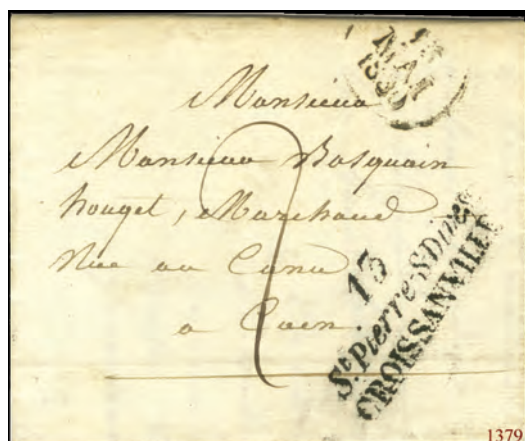 MAI
Monsieur
Monsieur Bosquain
houget, Marchand
Rue au Canu
a Caen.
2
13
St Pierre-S-Dives
CROISSANVILLE
1379